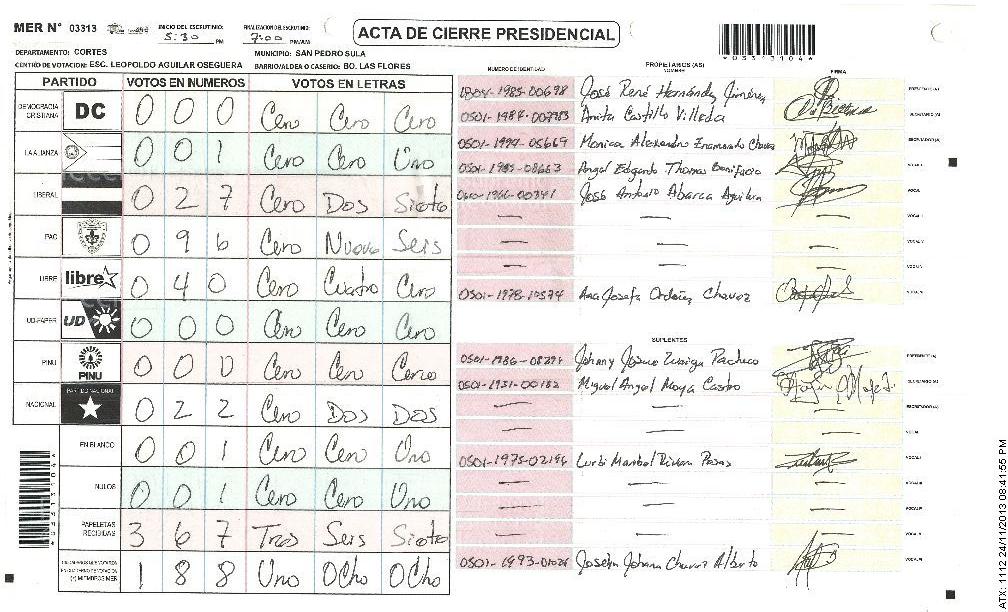 MER N° 03313 INICIO DEL ESCRUTINIO: 5:30 PM FINALIZACION DEL ESCRUTINIO: 7:00 PM/AM
ACTA DE CIERRE PRESIDENCIAL
DEPARTAMENTO: CORTES MUNICIPIO: SAN PEDRO SULA
CENTRO DE VOTACION: ESC. LEOPOLDO AGUILAR OSEGUERA BARRIO/ALDEA O CASERIO: BO. LAS FLORES
PARTIDO VOTOS EN NUMEROS VOTOS EN LETRAS
DEMOCRACIA CRISTIANA DC 0 0 0 Cero Cero Cero
LA ALIANZA 0 0 1 Cero Cero Uno
LIBERAL 0 2 7 Cero Dos Siete
PAC 0 9 6 Cero Nueve Seis
LIBRE libre 0 4 0 Cero Cuatro Cero
UD-FAPER UD 0 0 0 Cero Cero Cero
PINU PINU 0 0 0 Cero Cero Cero
NACIONAL PARTIDO NACIONAL 0 2 2 Cero Dos Dos
EN BLANCO 0 0 1 Cero Cero Uno
NULOS 0 0 1 Cero Cero Uno
PAPELETAS RECIBIDAS 3 6 7 Tres Seis Siete
1 8 8 Uno Ocho Ocho
NUMERO DE IDENTIDAD PROPIETARIOS (AS) NOMBRE FIRMA
1804-1985-00698 José René Hernández Jiménez PRESIDENTE (A)
Anita Castillo Villeda SECRETARIO (A)
0501-1994-05669 Monica Alexandra Enamorado Chavez ESCRUTADOR (A)
0501-1985-08663 Angel Edgardo Thomas Bonifacio VOCAL I
José Antonio Abarca Aguilera VOCAL
0501-1978-10574 Ana Josefa Ordoñez Chavez
SUPLENTES
Johnny Josue Zuniga Pacheco PRESIDENTE (A)
0501-1951-00182 Miguel Angel Moya Castro SECRETARIO (A)
ESCRUTADOR (A)
0501-1975-02194 Maribel Rivera
0501-1993-01026 Joselyn Johana Chavez Alberto
*03313104*
ATX: 1112 24/11/2013 08:41:55 PM